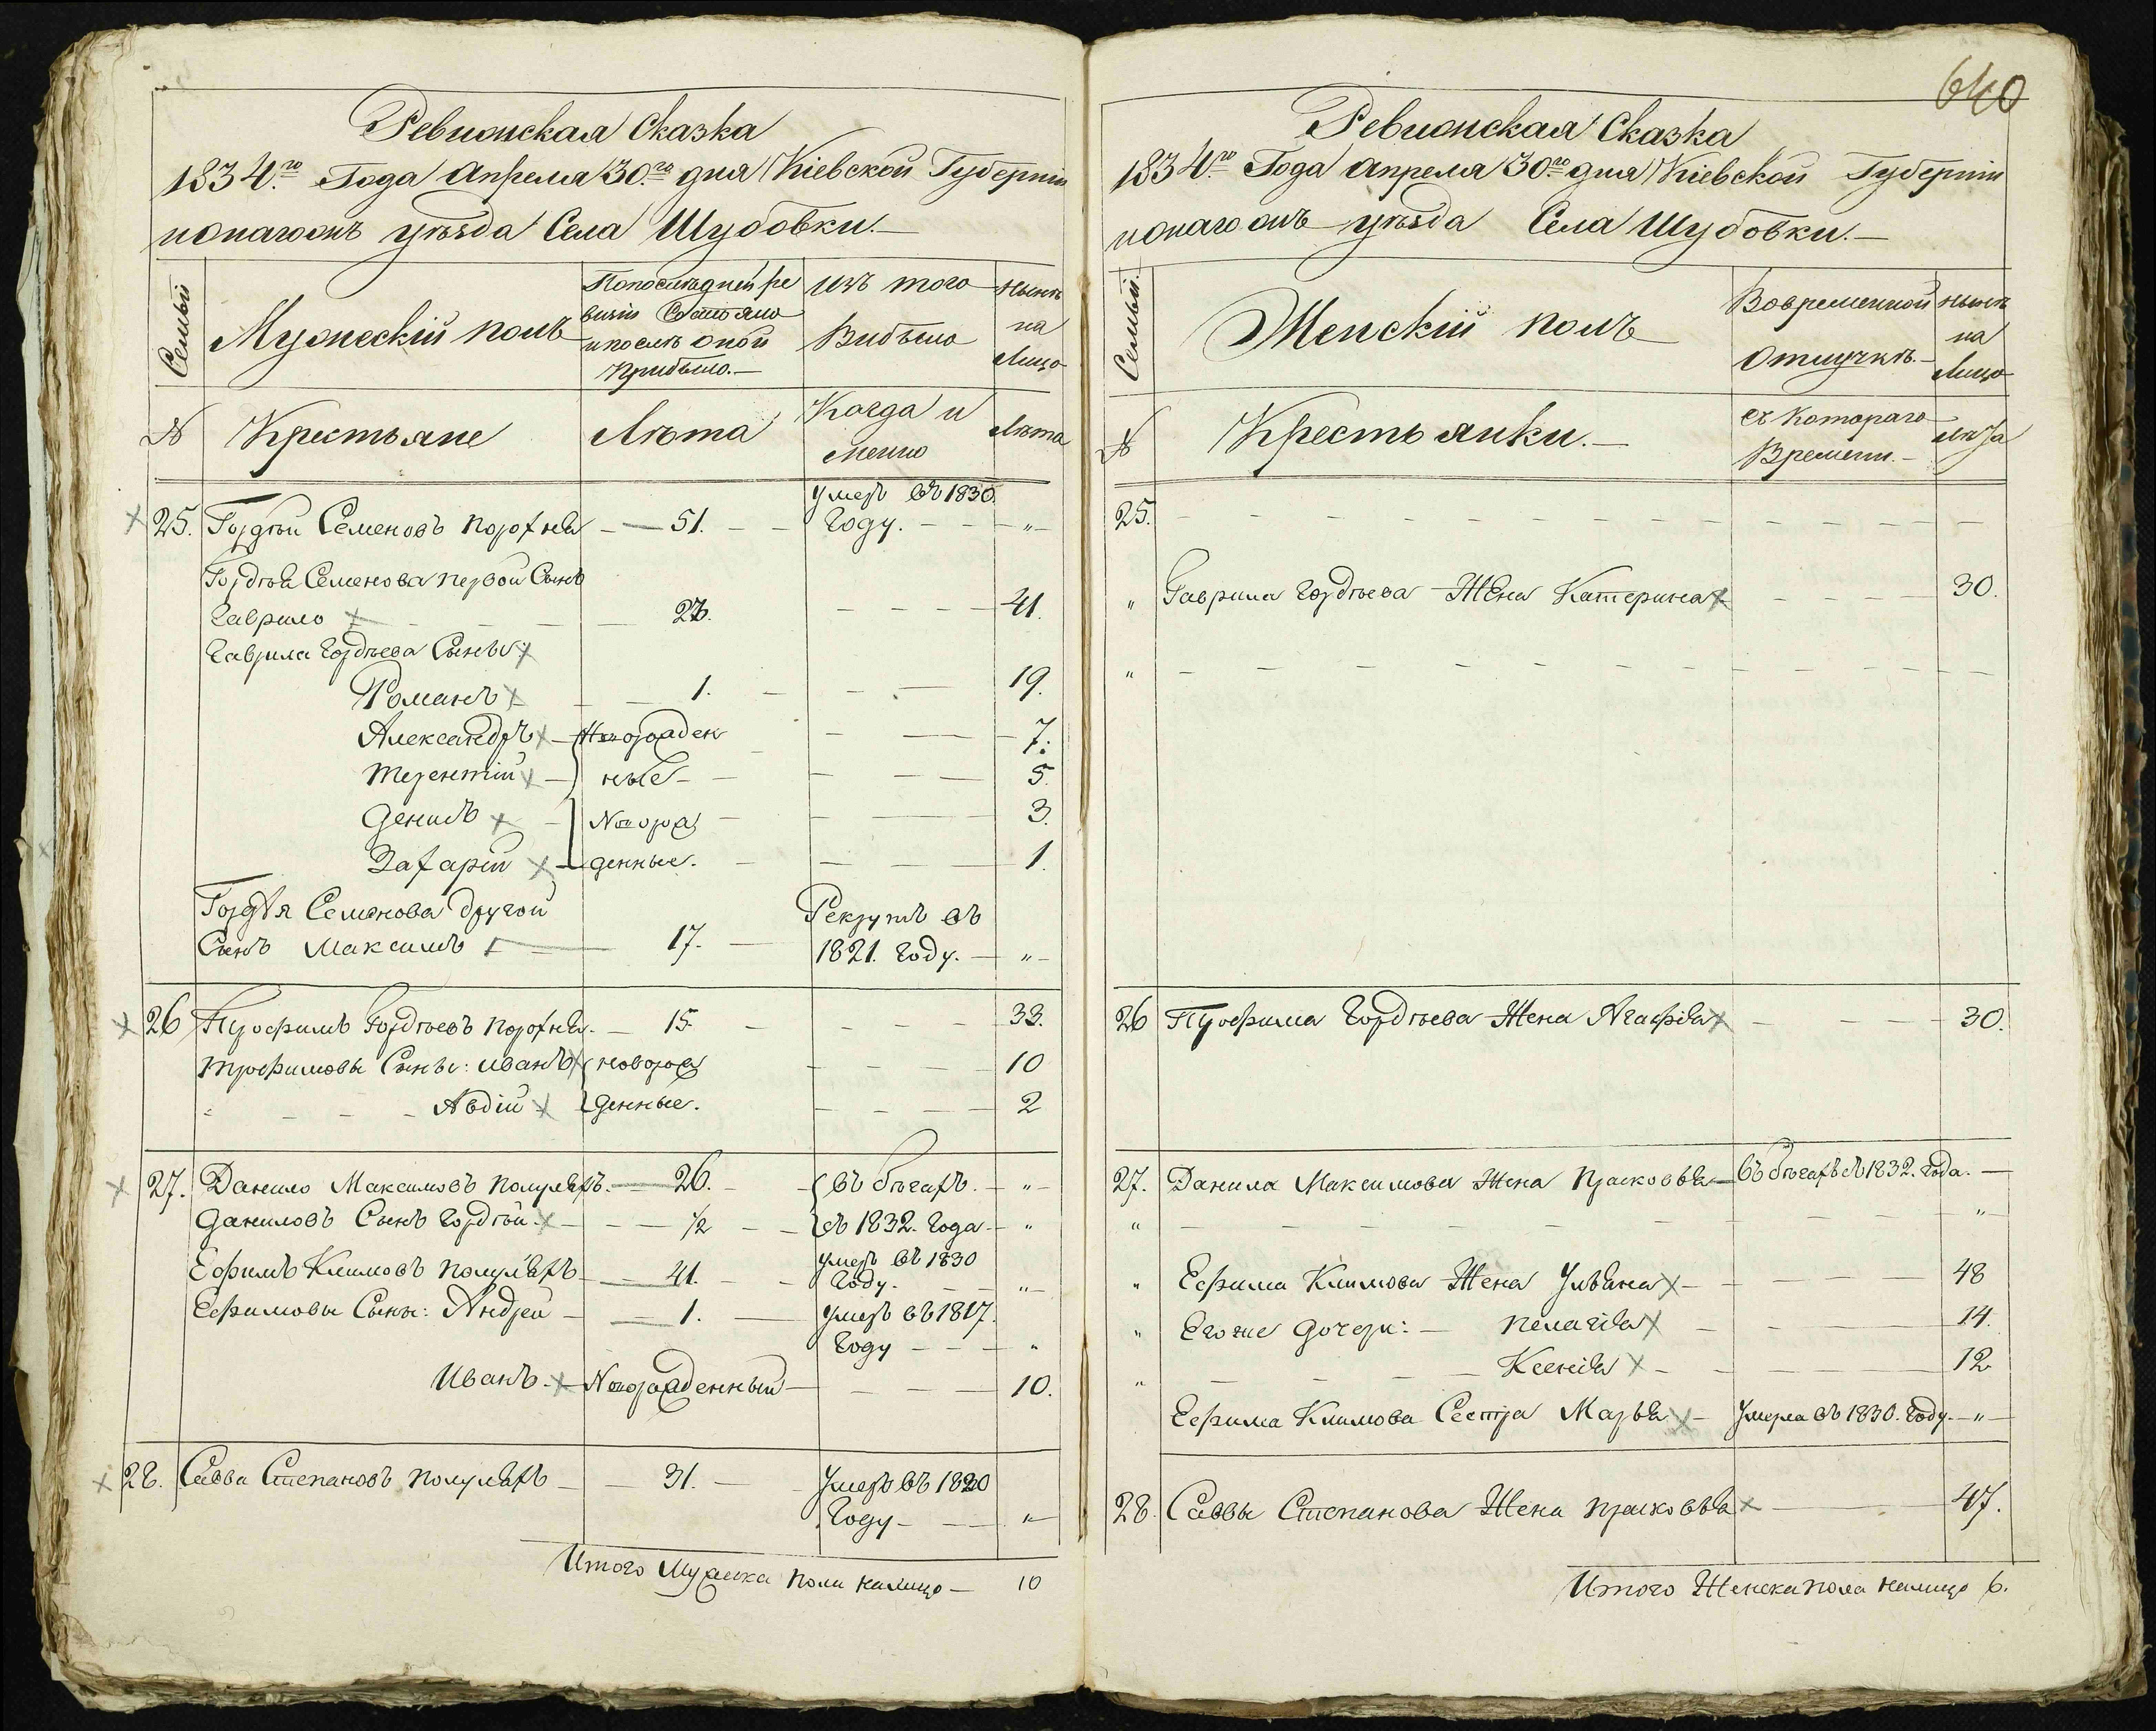 Ревизская Сказка
1834.го Года Апреля 30.го дня Кіевской Губерніи
уѣзда Села Шубовки.
Семьи
Мужескій полъ
По последней ре
визіи Состояло
и после оной
прибыло.
изъ того
Выбыло
нынѣ
на
Лицо
№
Крестьяне
Лѣта
Когда и
менно
Лѣта
25. Гордѣй Семеновъ 51. умеръ въ 1830.
Году. "
Гордѣя Семенова первой Сынъ
Гаврило 41.
Гаврила Гордѣева Сыны
Романъ 1. 19.
Александръ Новорожден 7.
Терентій ные 5.
Денисъ Новорож 3.
Захарій денные. 1.
Гордѣя Семенова другой
Сынъ Максимъ 17. Рекрутъ въ
1821. Году. "
26 Трофимъ Гордѣевъ 15. 33.
Трофимовы Сыны: Иванъ новорож 10
Авдій денные. 2
27. Данило Максимовъ Полуляхъ. 26. въ бѣгахъ. "
Даниловъ Сынъ Гордѣй 1/2 съ 1832. Года "
Ефимъ Климовъ Полуляхъ 41. умеръ въ 1830
Году. "
Ефимовы Сыны: Андрей 1. умеръ въ 1817.
Году "
Иванъ Новорожденный 10.
28. Савва Степановъ Полуляхъ 31. Умеръ въ 1820
Году "
Итого Мужеска пола налицо 10
640
Ревизская Сказка
1834.го Года Апреля 30.го дня Кіевской Губерніи
уѣзда Села Шубовки.
Семьи.
Женскій полъ
Во временной
отлучкѣ.
нынѣ
на
Лицо
№
Крестьянки.
съ Котораго
Времени.
лѣта
25.
" Гаврила Гордѣева Жена Катерина 30.
"
26 Трофима Гордѣева Жена Агафія 30.
27. Данила Максимова Жена Прасковья въ бѣгахъ съ 1832. года.
" "
" Ефима Климова Жена Ульяна 48
" Егоже Дочери: Пелагія 14.
" Ксенія 12
Ефима Климова Сестра Марья Умерла въ 1830. Году. "
28. Саввы Степанова Жена Прасковья 47.
Итого Женска пола налицо 6.